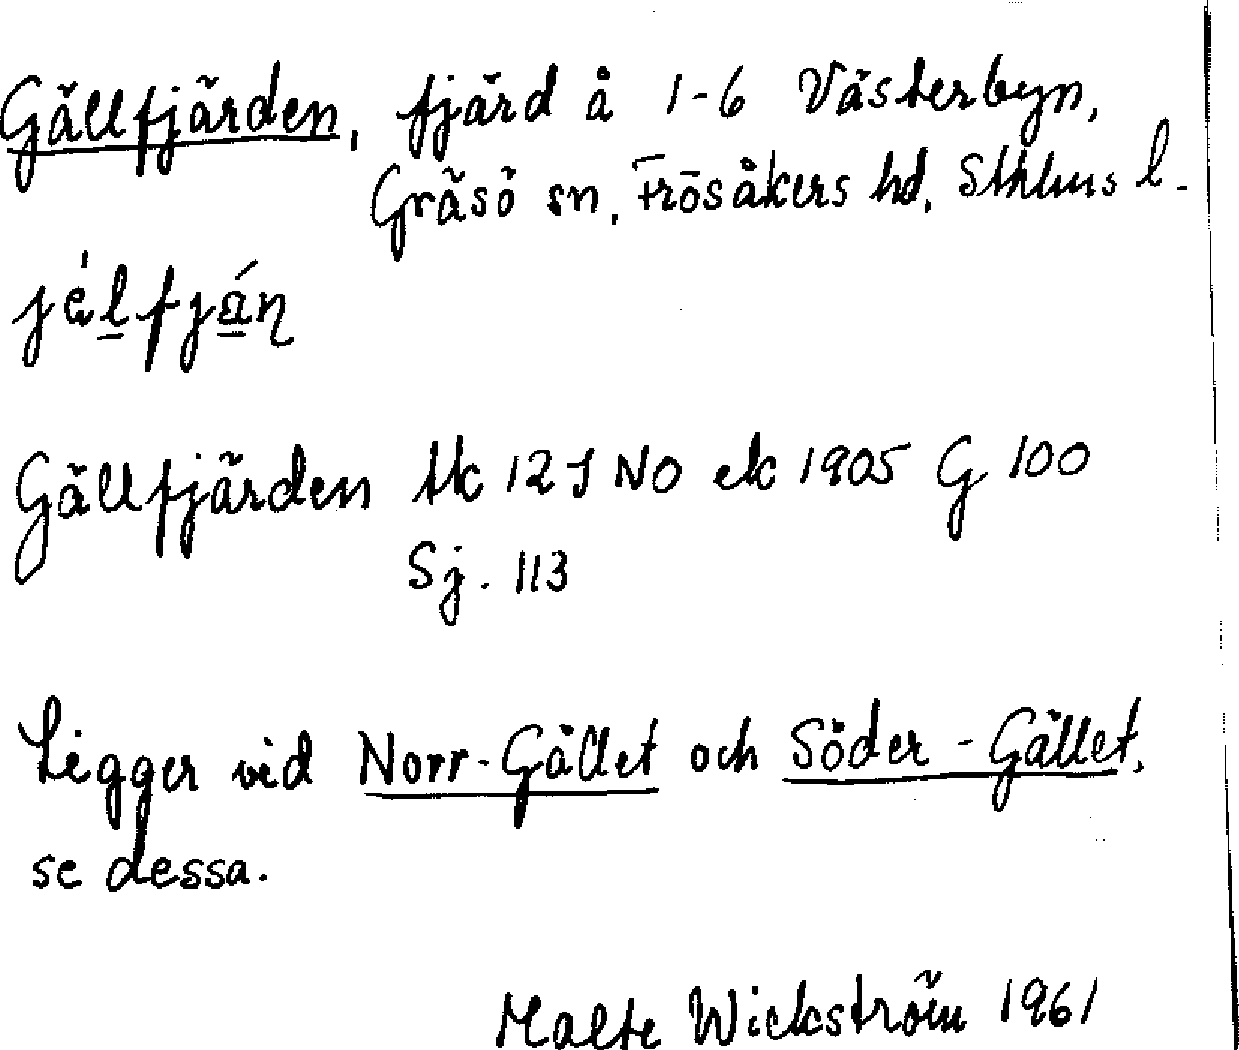 Gällfjärden, fjärd å 1-6 Västerbyn,
Gräsö sn, Frösåkers hd, Sthlms l.
jélfján
Gällfjärden 12 I NO ek 1905 G 100
Sj. 113
Ligger vid Norr-Gället och Söder-Gället,
se dessa.
Malte Wickström 1961